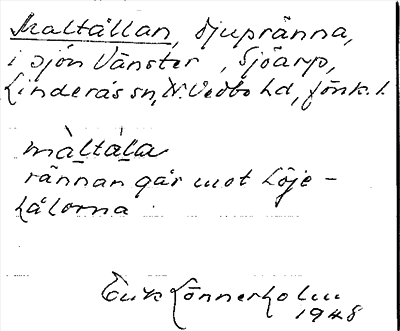 Maltållan, djupränna,
i sjön Vänster, Sjöarp,
Linderås sn, N. Vedbo hd, Jönk. l.
màltála
rännan går mot Löje-
hålorna
Erik Lönnerholm
1948